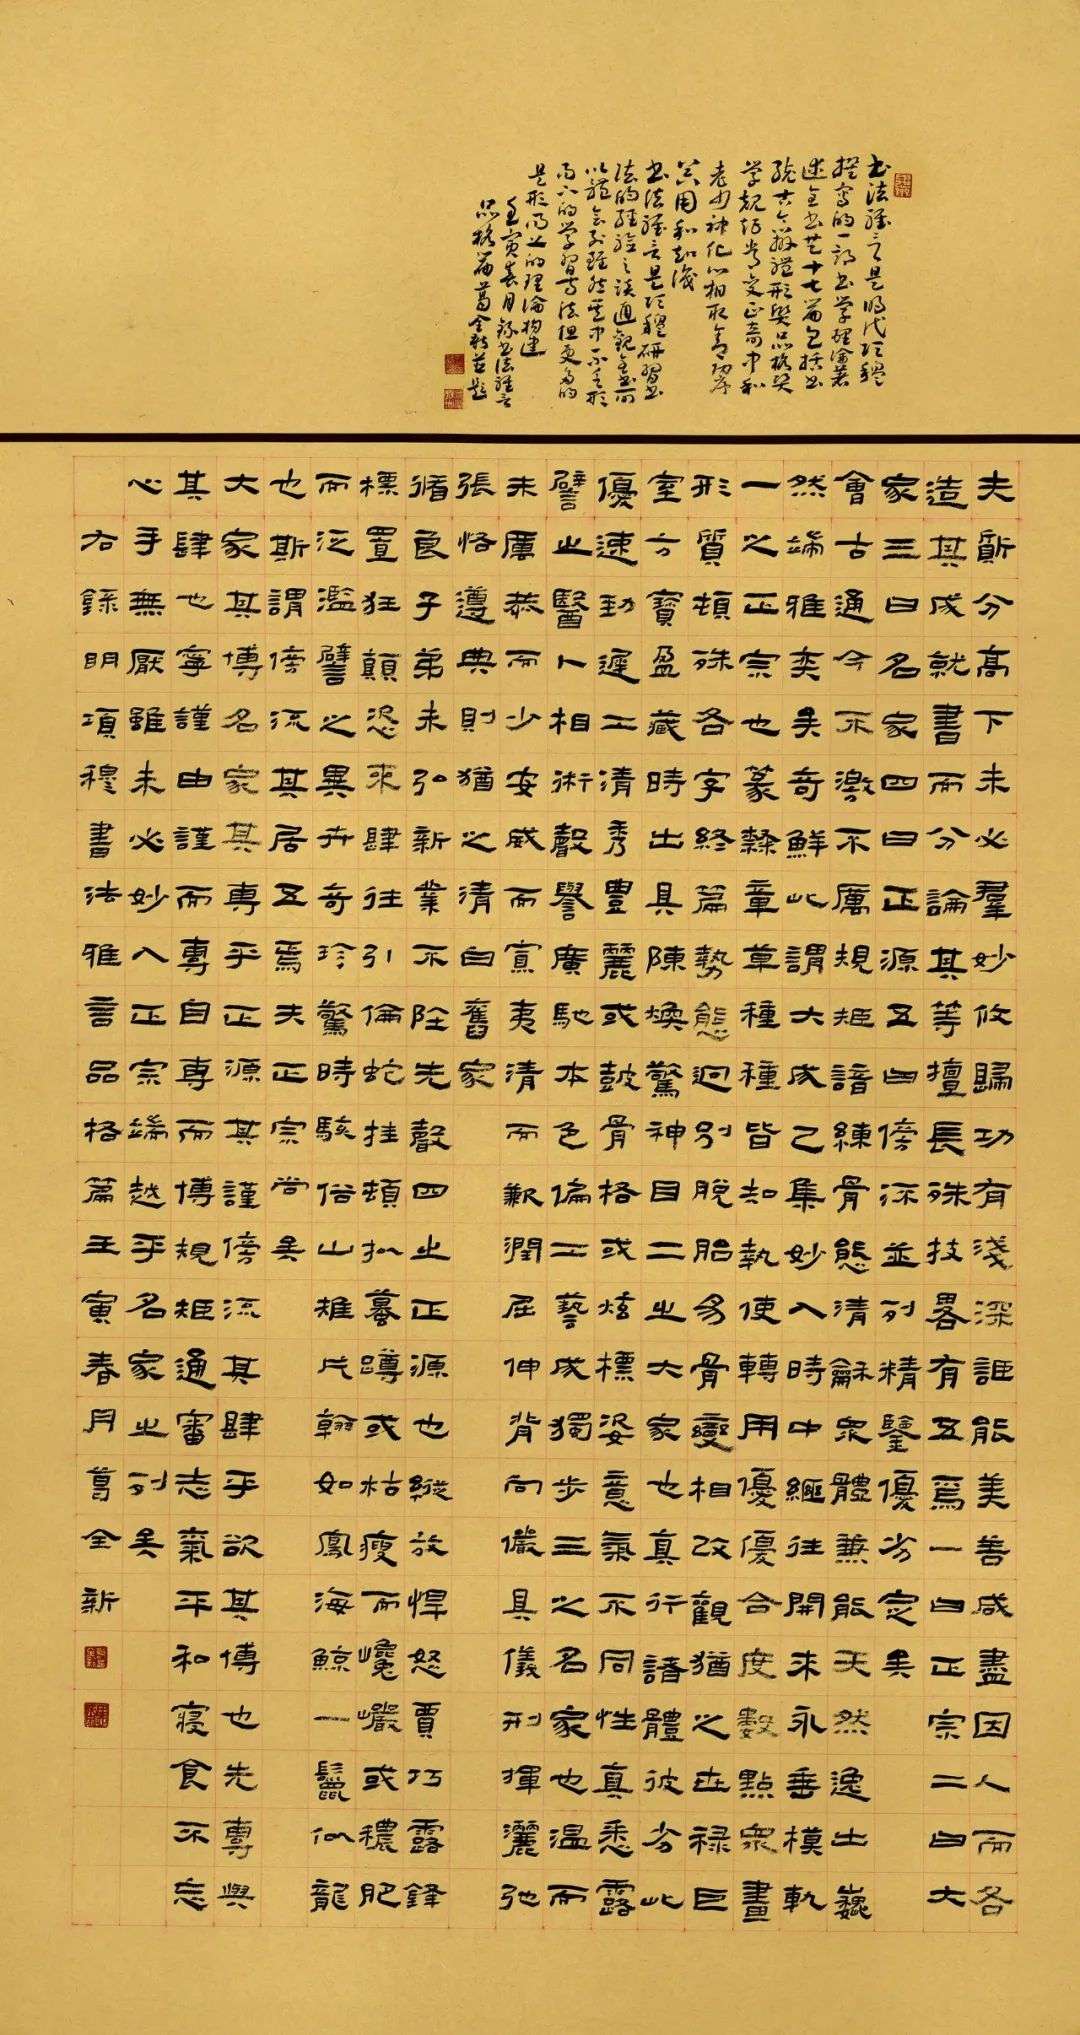 书法雅言是明代项穆
撰写的一部书学理论著
述全书共十七篇包括书
统古今辨体形质品格资
学规矩常变正奇中和
老少神化心相取舍功序
器用和知识
书法雅言是项穆研习书
法的经验之谈通观全书所
以体会到虽然其中不乏形
而下的学习方法但更多的
是形而上的理论构建
壬寅春月录书法雅言
品格篇葛全新并题
夫質分高下未必羣妙攸歸功有淺深詎能美善咸盡因人而各
造其成就書而分論其等擅長殊技畧有五焉一曰正宗二曰大
家三曰名家四曰正源五曰傍流並列精鑒優劣定矣
會古通今不激不厲規矩諳練骨態清龢眾體兼能天然逸出巍
然端雅奕矣奇鮮此謂大成已集妙入時中繼往開來永垂模軌
一之正宗也篆隸章草種種皆知執使轉用優優合度數點眾畫
形質頓殊各字終篇勢態迥別脫胎易骨變相改觀猶之世祿巨
室方寶盈藏時出具陳煥驚神目二之大家也真行諸體彼劣此
優速勁遲工清秀豐麗或鼓骨格或炫標姿意氣不同性真悉露
譬之醫卜相術聲譽廣馳本色偏工藝成獨步三之名家也溫而
未厲恭而少安威而寡夷清而歉潤屈伸背向儼具儀刑揮灑弛
張恪遵典則猶之清白舊家
循良子弟未弘新業不隕先聲四之正源也縱放悍怒賈巧露鋒
標置狂顛恣來肆往引倫蛇挂頓擬蟇蹲或枯瘦而巉巖或穠肥
而泛濫譬之異卉奇珍驚時駭俗山雉片翰如鳳海鯨一鬣似龍
也斯謂傍流其居五焉夫正宗尚矣
大家其博名家其專乎正源其謹傍流其肆乎欲其博也先專與
其肆也寧謹由謹而專自專而博規矩通審志氣平和寢食不忘
心手無厭雖未必妙入正宗端越乎名家之列矣
右錄明項穆書法雅言品格篇壬寅春月葛全新